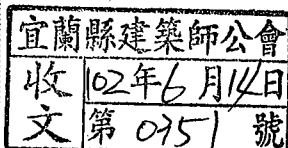 宜蘭縣建築師公會
收文
102年6月14日
第0751號